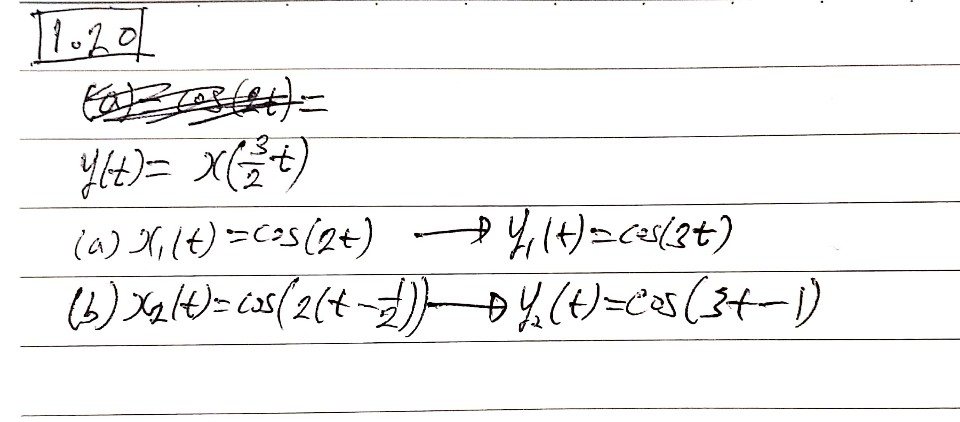 1.20
(a) = cos(2t) =
y(t) = x(3/2 t)
(a) x₁(t) = cos(2t) → y₁(t) = cos(3t)
(b) x₂(t) = cos(2(t - 1/2)) → y₂(t) = cos(3t - 1)